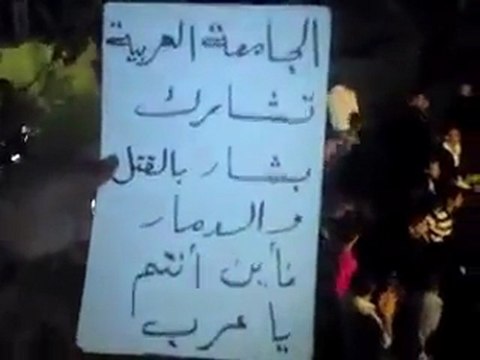 الجامعة العربية
تشارك
بشار بالقتل
والدمار
فأين أنتم
يا عرب